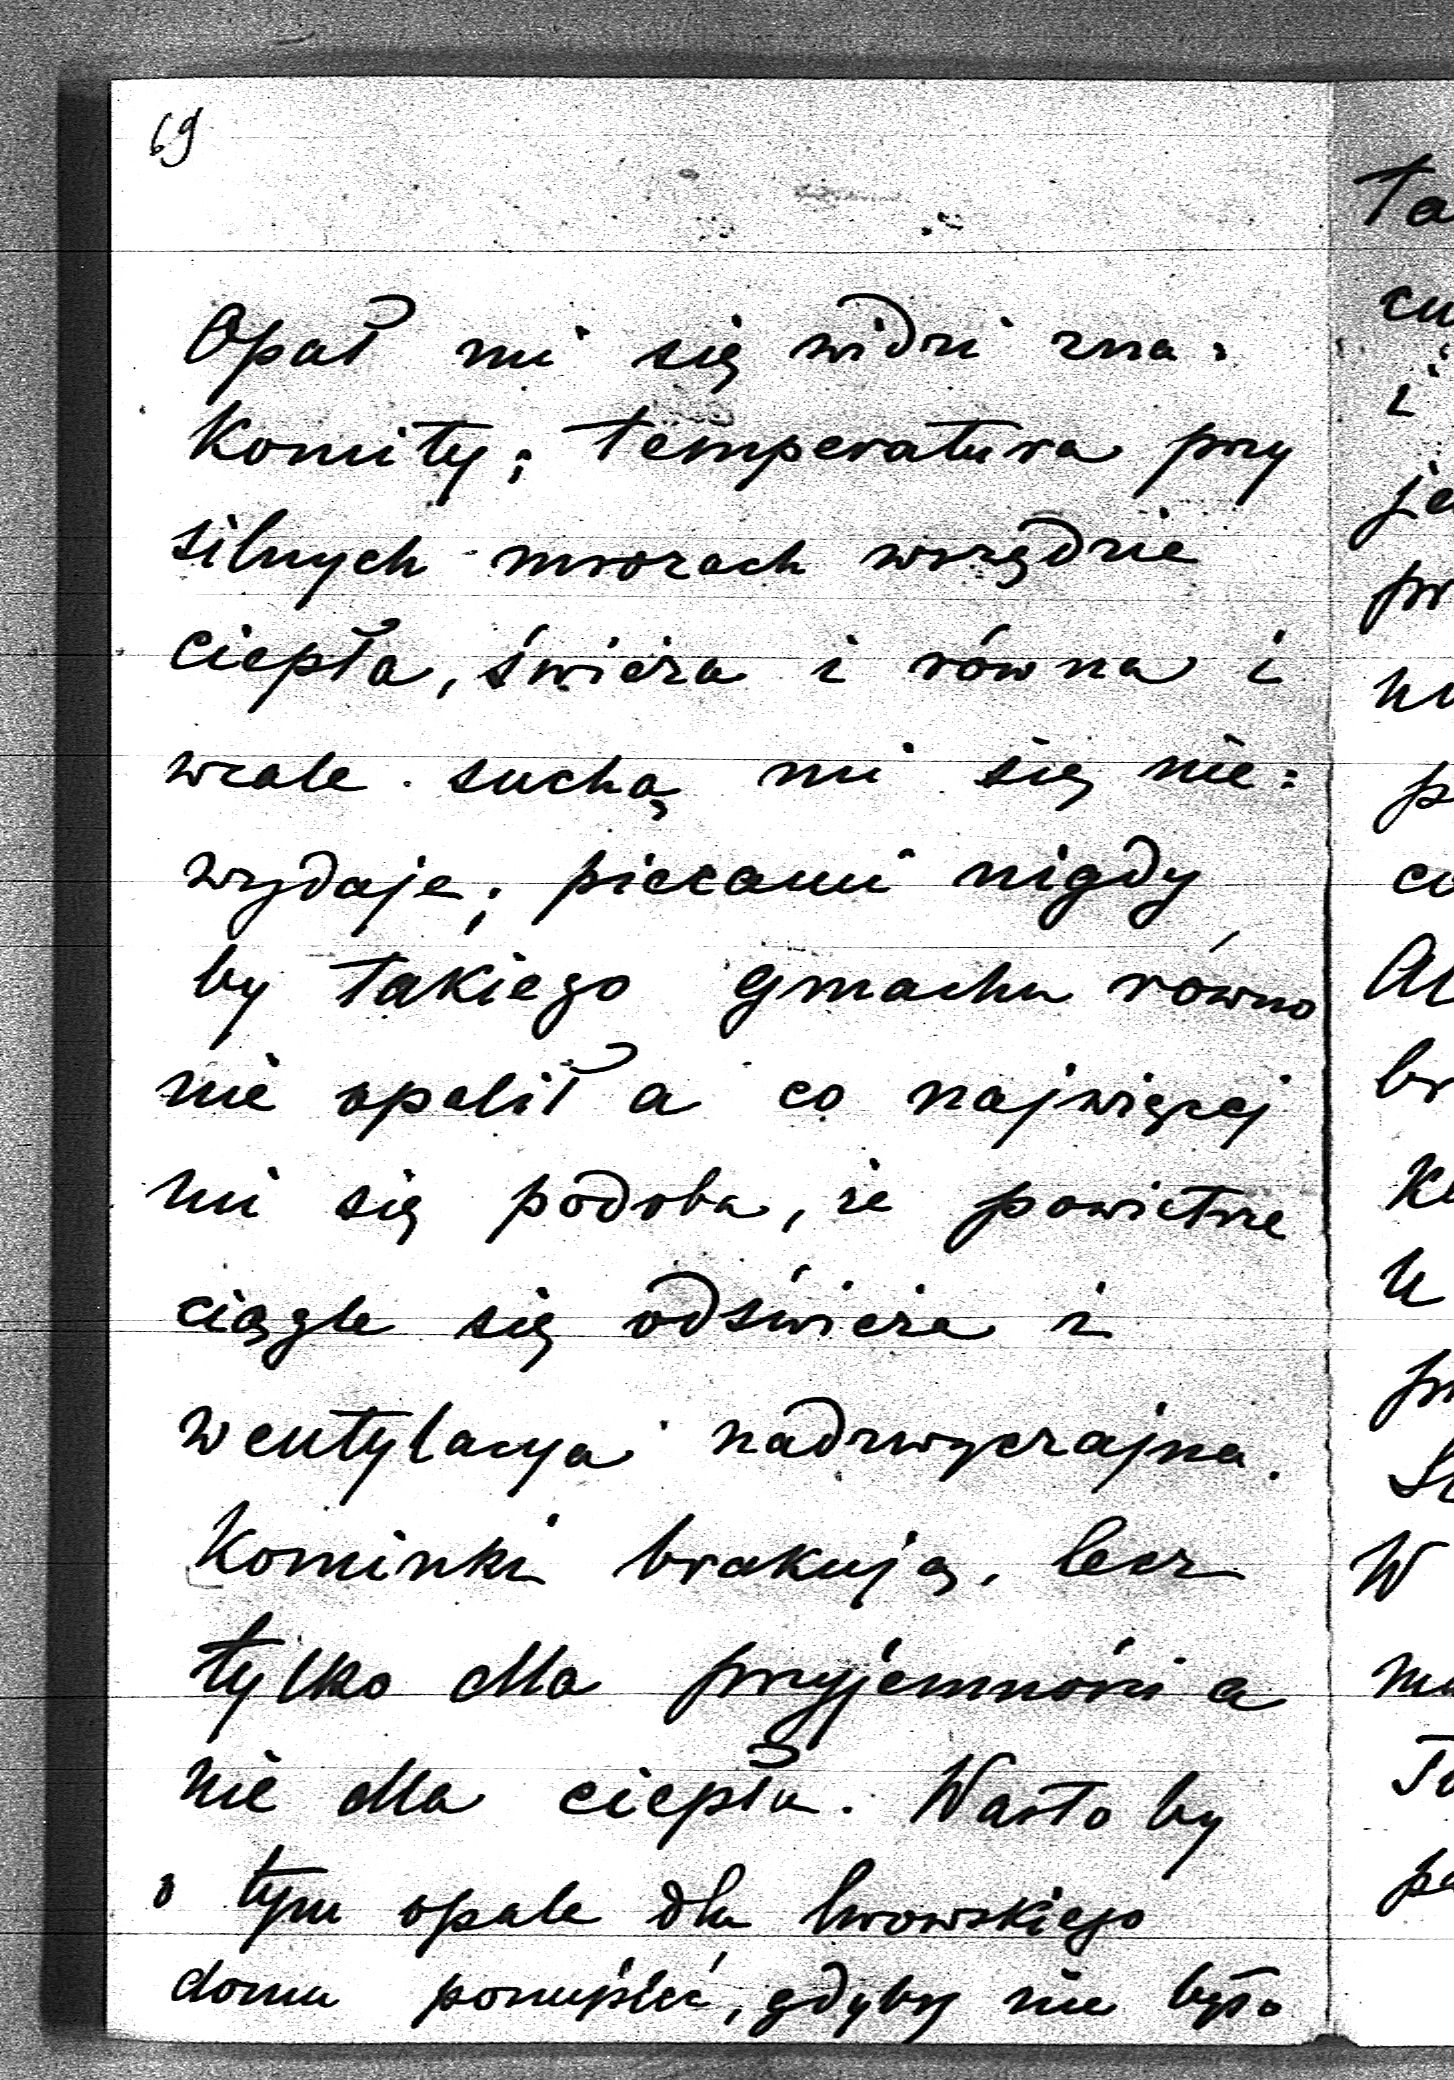 69
Opał mi się widzi zna:
komity; temperatura przy
silnych mrozach wszędzie
ciepła, świeża i równa i
wcale suchą mi się nie:
wydaje; piecami nigdy
by takiego gmachu równo
nie opalił a co najwięcej
mi się podoba, że powietrze
ciągle się odświeża i
wentylacya nadzwyczajna.
Kominki brakują, lecz
tylko dla przyjemności a
nie dla ciepła. Warto by
o tym opale dla lwowskiego
domu pomyśleć, gdyby nie było